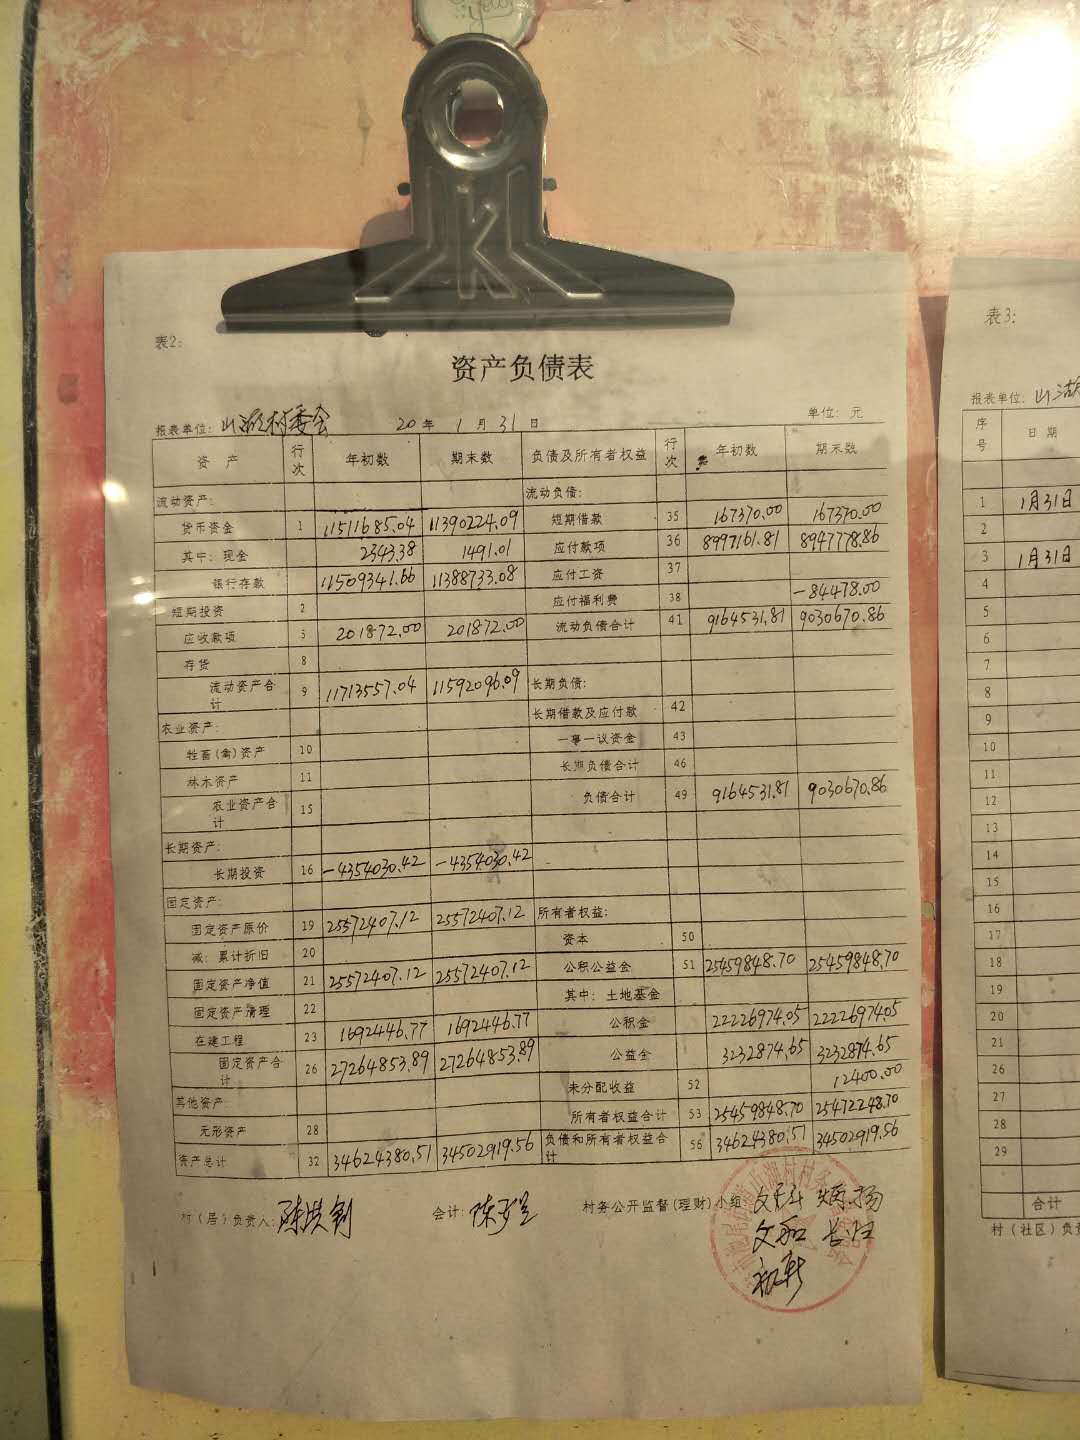 表2:
资产负债表
报表单位: 山湖村委会 20 年 1 月 31 日 单位: 元
资 产 行次 年初数 期末数 负债及所有者权益 行次 年初数 期末数
流动资产: 流动负债:
货币资金 1 11511685.04 11390224.09 短期借款 35 167370.00 167370.00
其中: 现金 2343.38 1491.01 应付款项 36 8997161.81 8947778.86
银行存款 11509341.66 11388733.08 应付工资 37
短期投资 2 应付福利费 38 -84478.00
应收款项 5 201872.00 201872.00 流动负债合计 41 9164531.81 9030670.86
存货 8
流动资产合计 9 11713557.04 11592096.09 长期负债:
农业资产: 长期借款及应付款 42
牲畜(禽)资产 10 一事一议资金 43
林木资产 11 长期负债合计 46
农业资产合计 15 负债合计 49 9164531.81 9030670.86
长期资产:
长期投资 16 -4354030.42 -4354030.42
固定资产: 所有者权益:
固定资产原价 19 25572407.12 25572407.12
减: 累计折旧 20 资本 50
固定资产净值 21 25572407.12 25572407.12 公积公益金 51 25459848.70 25459848.70
固定资产清理 22 其中: 土地基金
在建工程 23 1692446.77 1692446.77 公积金 22226974.05 22226974.05
固定资产合计 26 27264853.89 27264853.89 公益金 3232874.65 3232874.65
其他资产: 未分配收益 52 12400.00
无形资产 28 所有者权益合计 53 25459848.70 25472248.70
资产总计 32 34624380.51 34502919.56 负债和所有者权益合计 56 34624380.51 34502919.56
村(居)负责人: 会计: 村务公开监督(理财)小组
表3:
报表单位: 山湖
序号 日期
1 1月31日
2
3 1月31日
4
5
6
7
8
9
10
11
12
13
14
15
16
17
18
19
20
21
26
27
28
29
合计
村(社区)负